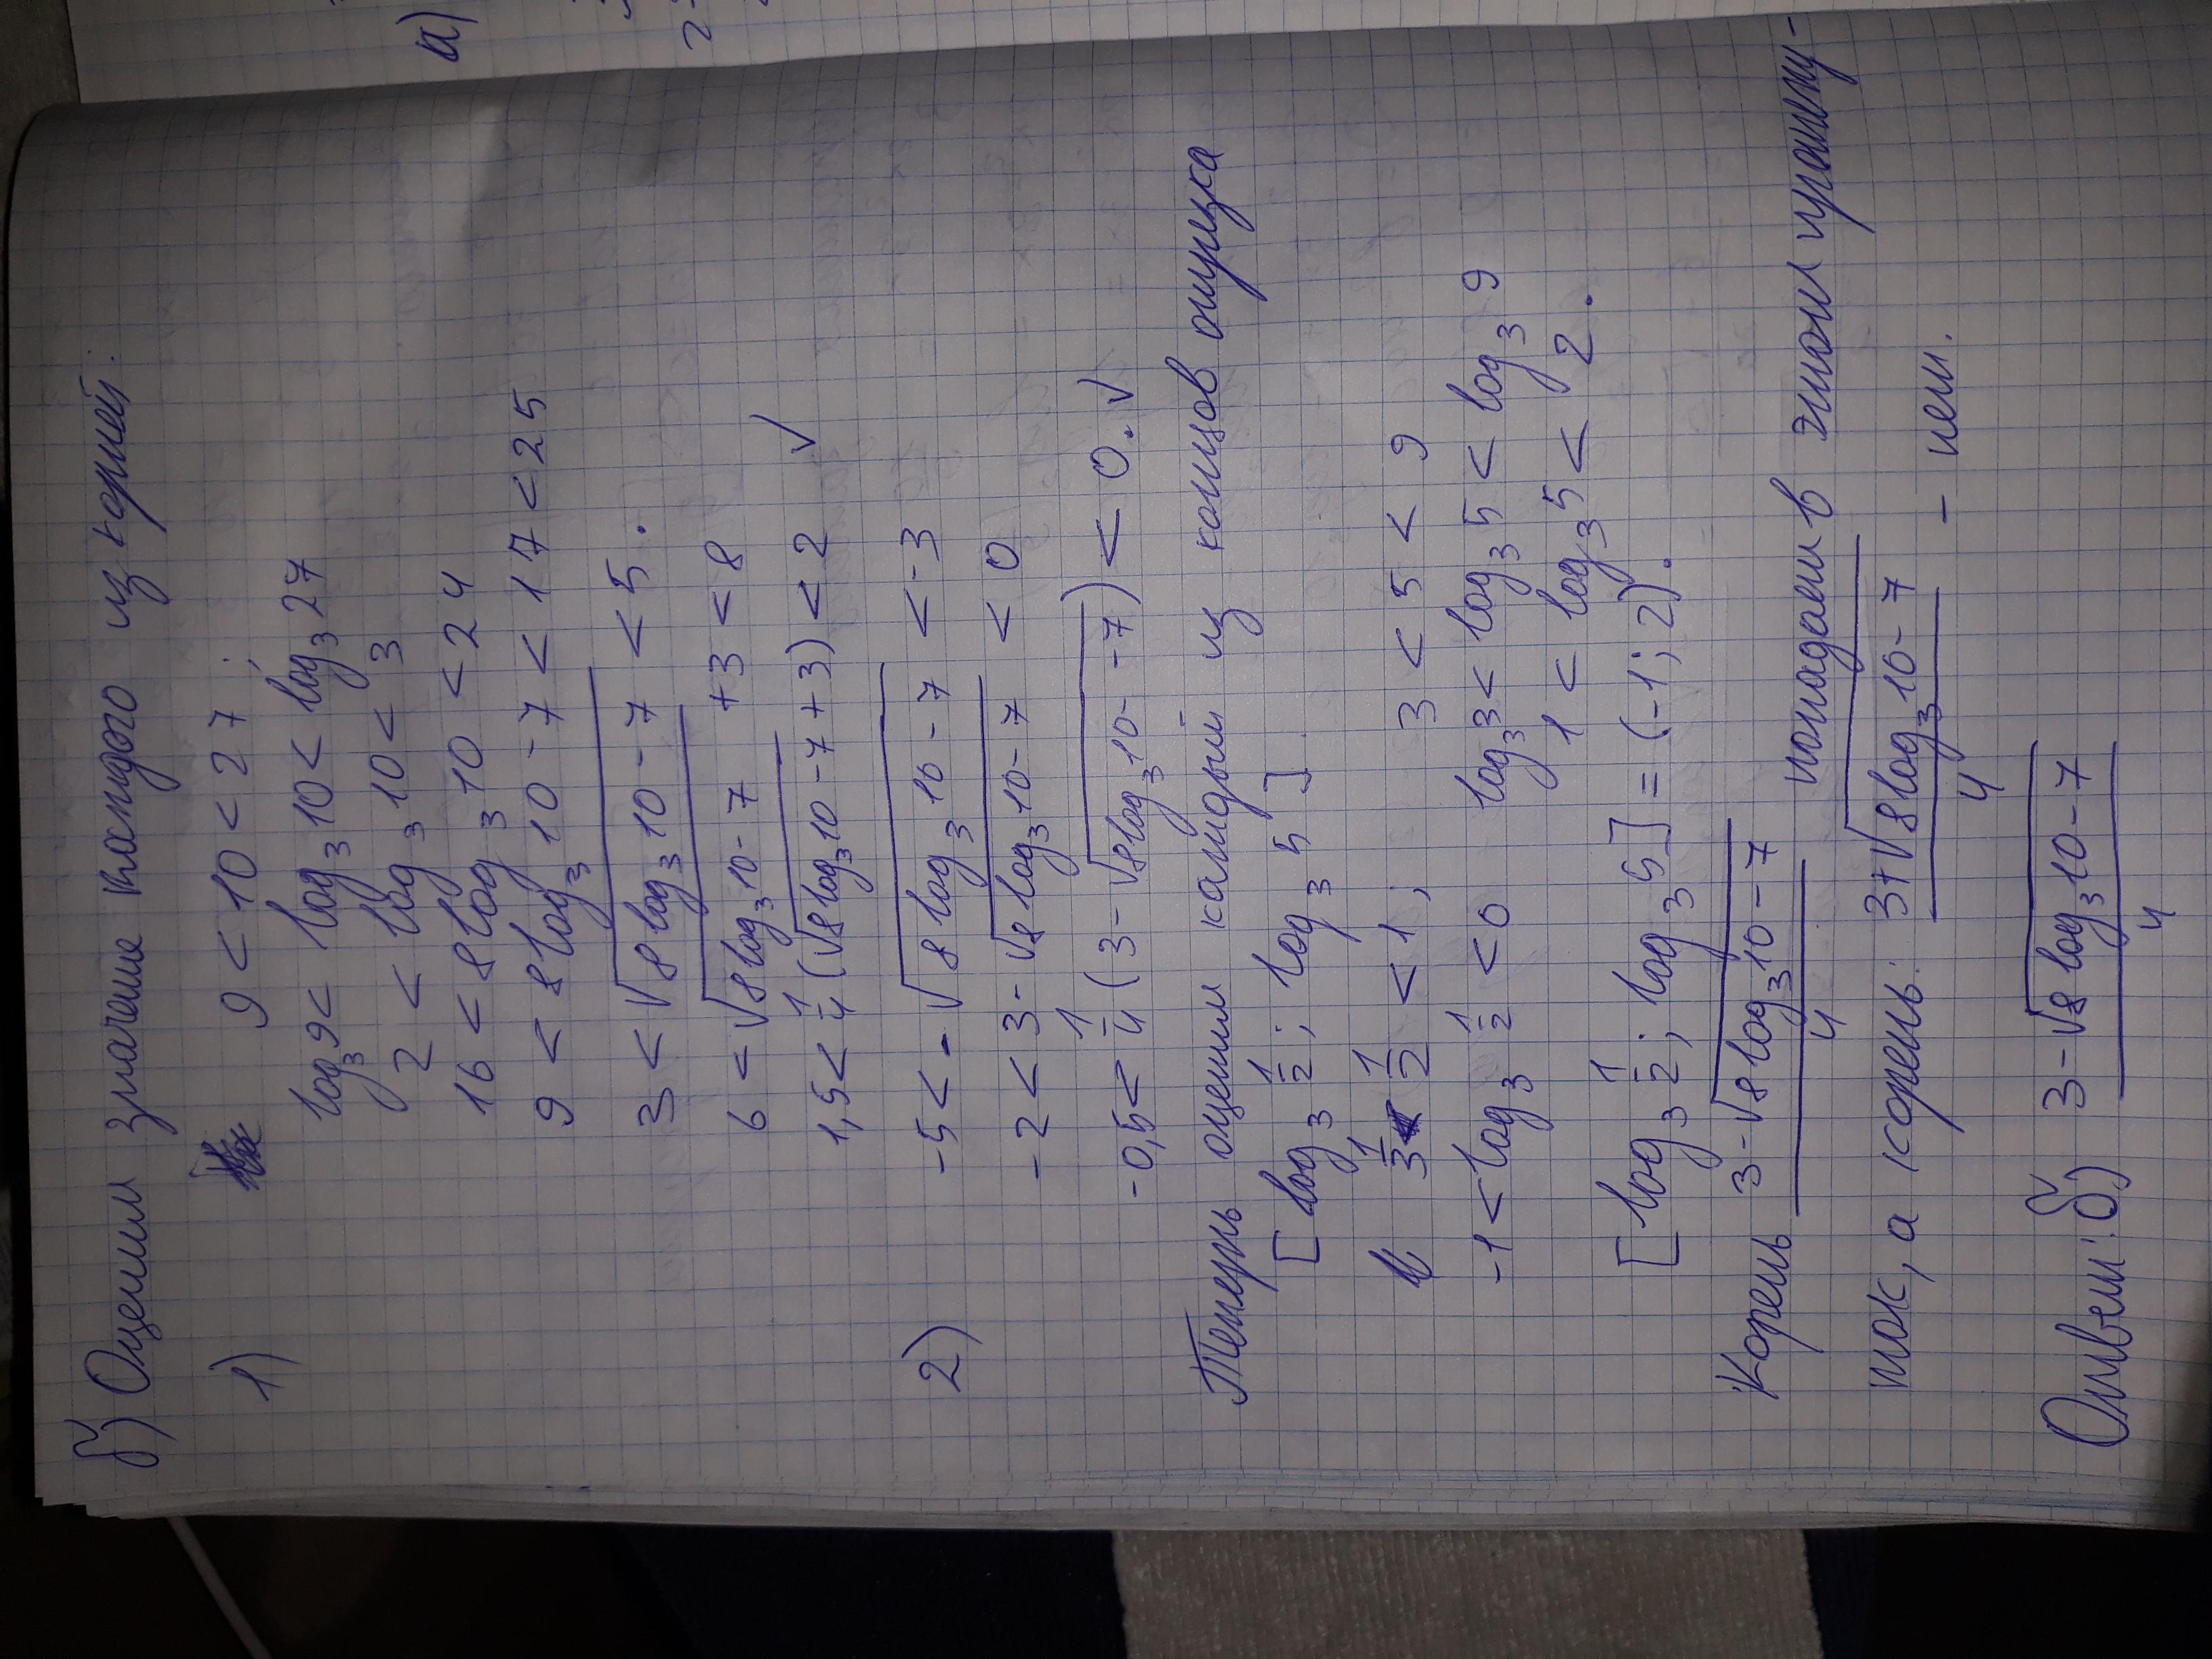 б) Оценим значение каждого из корней:
1) 9 < 10 < 27 ;
log₃9 < log₃10 < log₃27
2 < log₃10 < 3
16 < 8log₃10 < 24
9 < 8log₃10 - 7 < 17 < 25
3 < √(8log₃10 - 7) < 5.
6 < √(8log₃10 - 7) + 3 < 8
1,5 < 1/4 (√(8log₃10 - 7) + 3) < 2 √
2) -5 < -√(8log₃10 - 7) < -3
-2 < 3 - √(8log₃10 - 7) < 0
-0,5 < 1/4 (3 - √(8log₃10 - 7)) < 0. √
Теперь оценим каждый из концов отрезка
[log₃ 1/2 ; log₃5]
1/3 < 1/2 < 1 ; 3 < 5 < 9
-1 < log₃ 1/2 < 0 log₃3 < log₃5 < log₃9
1 < log₃5 < 2.
[log₃ 1/2 ; log₃5] = (-1; 2).
Корень (3 - √(8log₃10 - 7))/4 попадает в этот промежу-
ток, а корень: (3 + √(8log₃10 - 7))/4 - нет.
Ответ: б) (3 - √(8log₃10 - 7))/4
а)
2